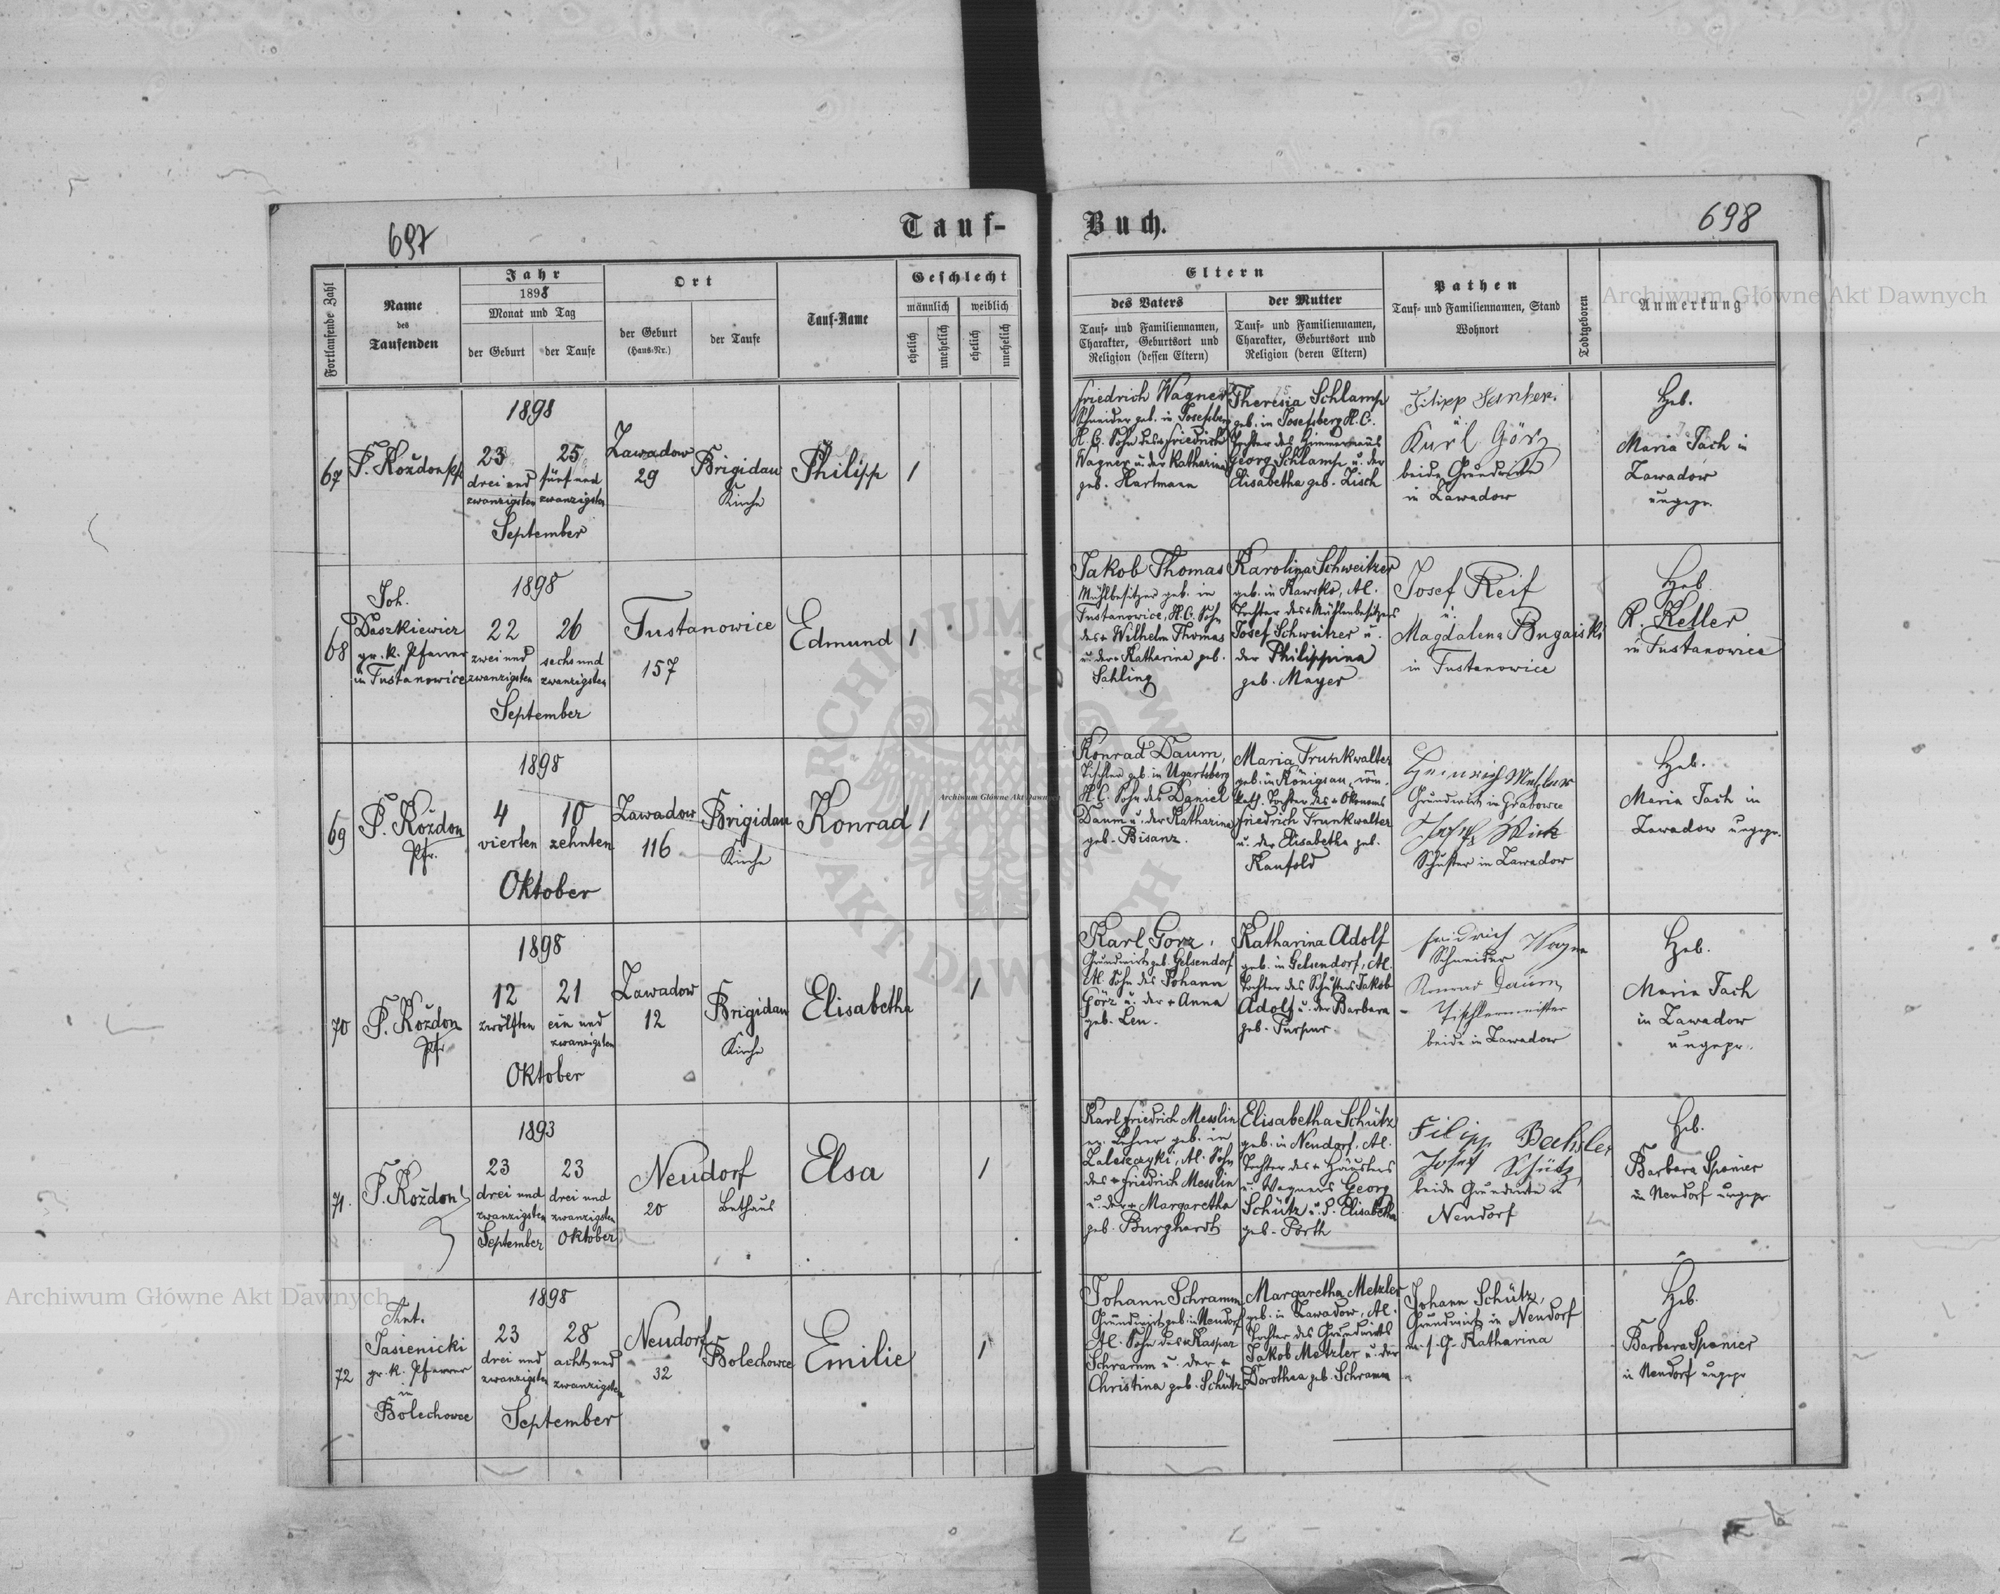 697
Tauf-
Buch.
698
Fortlaufende Zahl
Name
des
Taufenden
Jahr
1898
Monat und Tag
der Geburt
der Taufe
Ort
der Geburt
(Haus-Nr.)
der Taufe
Tauf-Name
Geschlecht
männlich
weiblich
ehelich
unehelich
ehelich
unehelich
Eltern
des Vaters
Tauf- und Familiennamen,
Charakter, Geburtsort und
Religion (dessen Eltern)
der Mutter
Tauf- und Familiennamen,
Charakter, Geburtsort und
Religion (deren Eltern)
Pathen
Tauf- und Familiennamen, Stand
Wohnort
Todtgeboren
Anmerkung
67
P. Koždon Pf.
1898
23
drei und
zwanzigsten
25
fünf und
zwanzigsten
September
Zawadow
29
Brigidau
Kirche
Philipp
1
Friedrich Wagner
Schneider geb. in Josefsberg
H.C. Sohn des Friedrich
Wagner u. der Katharina
geb. Hartmann
Theresia Schlamp
geb. in Josefsberg H.C.
Tochter des Zimmermanns
Georg Schlamp u. der
Elisabetha geb. Zisch
Filipp
u
Karl Görz
beide Grundwirte
in Zawadow
Heb.
Maria Tach in
Zawadow
ungepr.
68
Joh.
Daszkiewicz
gr. k. Pfarrer
in Tustanowice
1898
22
zwei und
zwanzigsten
26
sechs und
zwanzigsten
September
Tustanowice
157
Edmund
1
Jakob Thomas
Mühlbesitzer geb. in
Tustanowice, H.C. Sohn
des + Wilhelm Thomas
u. der + Katharina geb.
Sahling
Karolina Schweitzer
geb. in Rawsko, AC.
Tochter des + Mühlenbesitzers
Josef Schweitzer u.
der Philippina
geb. Mayer
Josef Reif
u.
Magdalena Bugaiski
in Tustanowice
Heb.
R. Keller
in Tustanowice
69
P. Koždon
Pfr.
1898
4
vierten
10
zehnten
Oktober
Zawadow
116
Brigidau
Kirche
Konrad
1
Konrad Daum,
Tischler geb. in Ugartsberg
H.C. Sohn des Daniel
Daum u. der Katharina
geb. Bisanz.
Maria Trunkwalter
geb. in Königsau, röm.
kath. Tochter des + Ökonoms
Friedrich Trunkwalter
u. der Elisabetha geb.
Kaufold
Heinrich
Grundwirt in Grabowce
Josef Wirth
Schuster in Zawadow
Heb.
Maria Tach in
Zawadow ungepr.
70
P. Koždon
Pfr.
1898
12
zwölften
21
ein und
zwanzigsten
Oktober
Zawadow
12
Brigidau
Kirche
Elisabetha
1
Karl Görz,
Grundwirt geb. Gelsendorf
AC. Sohn des Johann
Görz u. der + Anna
geb. Leu.
Katharina Adolf
geb. in Gelsendorf, AC.
Tochter des Schusters Jakob
Adolf u. der Barbara
geb. Purpur
Friedrich Wagner
Schneider
Konrad Daum,
Tischlermeister
beide in Zawadow
Heb.
Maria Tach
in Zawadow
ungepr.
71.
P. Koždon
1893
23
drei und
zwanzigsten
September
23
drei und
zwanzigsten
Oktober
Neudorf
20
Bethaus
Elsa
1
Karl Friedrich Messlin
ev. Lehrer geb. in
Zaleszczyki, AC. Sohn
des + Friedrich Messlin
u. der + Margaretha
geb. Burghardt
Elisabetha Schütz
geb. in Neudorf, AC.
Tochter des + Häuslers
u. Wagners Georg
Schütz u. d. Elisabetha
geb. Porth
Filipp Bechsler
Josef Schütz,
beide Grundwirte in
Neudorf
Heb.
Barbara Spanier
in Neudorf ungepr.
72
Ant.
Jasienicki
gr. k. Pfarrer
in
Bolechowce
1898
23
drei und
zwanzigsten
28
acht und
zwanzigsten
September
Neudorf
32
Bolechowce
Emilie
1
Johann Schramm
Grundwirt geb. in Neudorf
AC. Sohn des + Kaspar
Schramm u. der +
Christina geb. Schütz
Margaretha Metzler
geb. in Zawadow, AC.
Tochter des Grundwirts
Jakob Metzler u. der
Dorothea geb. Schramm
Johann Schütz,
Grundwirt in Neudorf
u. s. G. Katharina
Heb.
Barbara Spanier
in Neudorf ungepr
Archiwum Główne Akt Dawnych
Archiwum Główne Akt Dawnych
Archiwum Główne Akt Dawnych